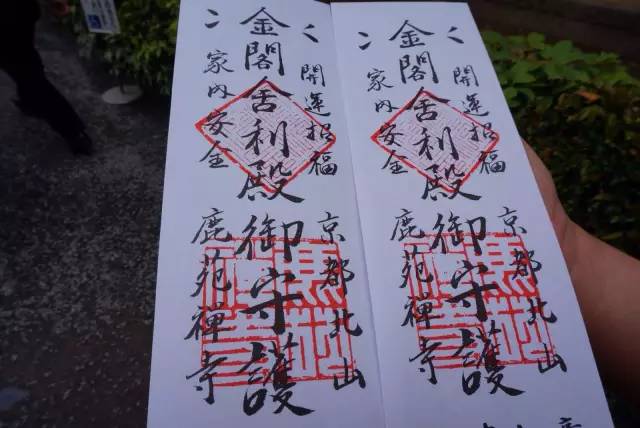 開運招福
金閣舎利殿御守護
家内安全
京都北山
鹿苑禅寺
開運招福
金閣舎利殿御守護
家内安全
京都北山
鹿苑禅寺